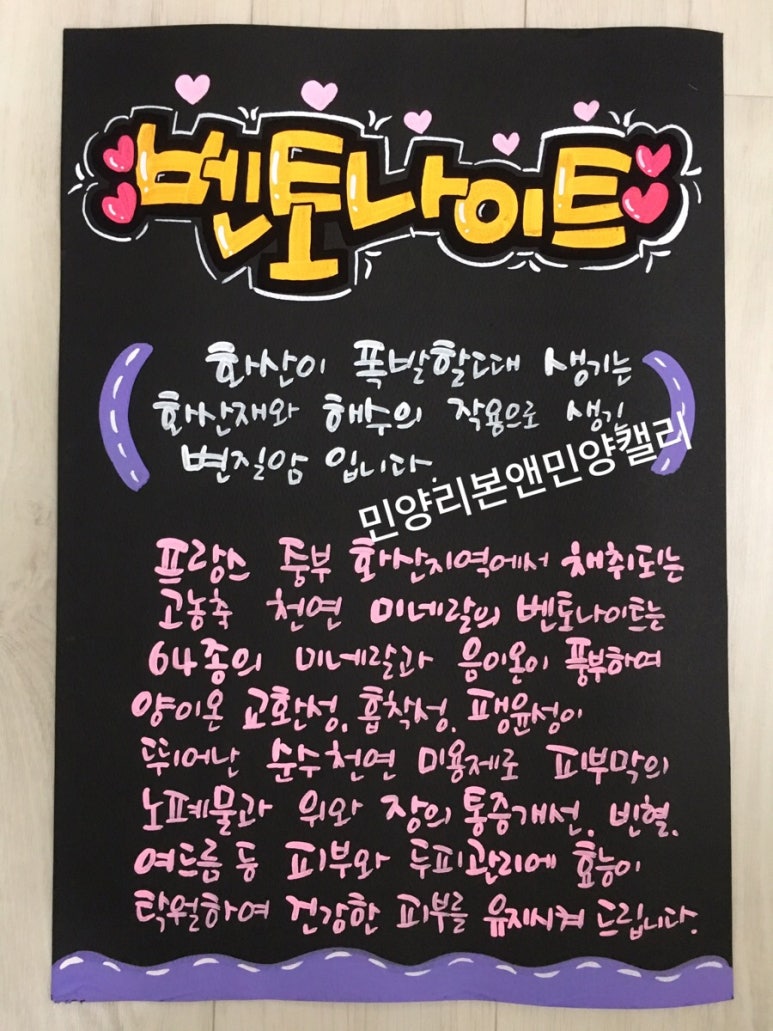 벤토나이트
화산이 폭발할때 생기는
화산재와 해수의 작용으로 생긴
변질암 입니다.
민양리본앤민양캘리
프랑스 중부 화산지역에서 채취되는
고농축 천연 미네랄의 벤토나이트는
64종의 미네랄과 음이온이 풍부하여
양이온 교환성, 흡착성, 팽윤성이
뛰어난 순수천연 미용제로 피부막의
노폐물과 위와 장의 통증개선, 빈혈,
여드름 등 피부와 두피관리에 효능이
탁월하여 건강한 피부를 유지시켜 드립니다.